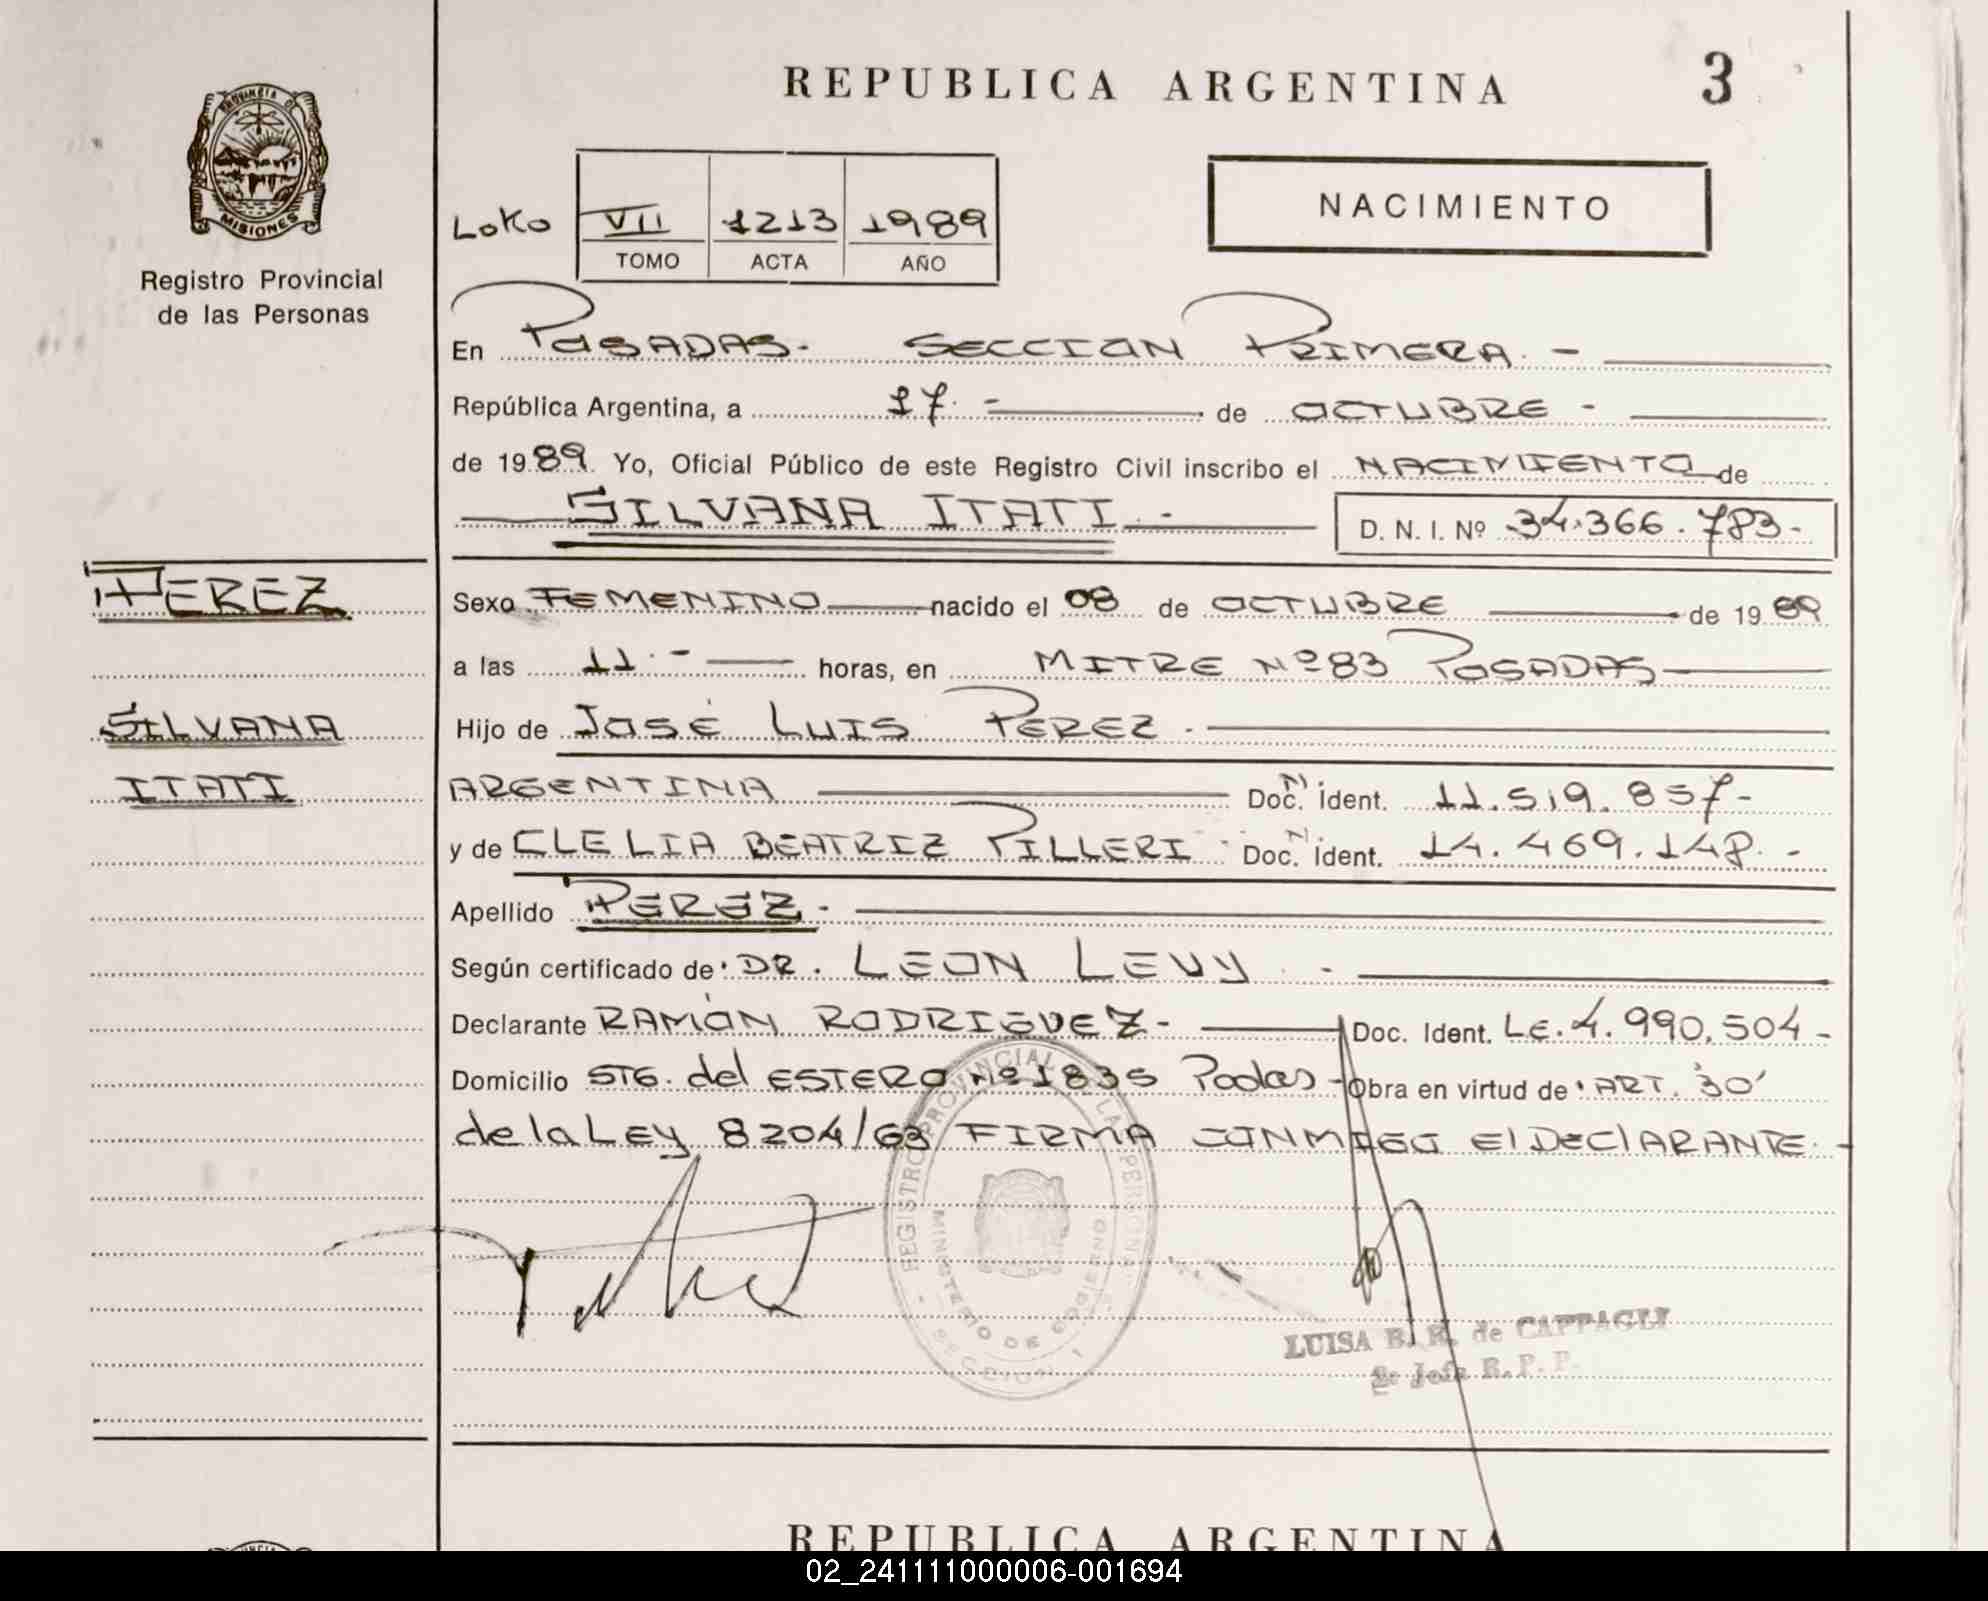 REPUBLICA ARGENTINA 3
PROVINCIA DE
MISIONES
Registro Provincial
de las Personas
NACIMIENTO
LOKO VII 1213 1989
TOMO ACTA AÑO
En POSADAS. SECCION PRIMERA. -
República Argentina, a 17. - de OCTUBRE -
de 1989. Yo, Oficial Público de este Registro Civil inscribo el NACIMIENTO de
SILVANA ITATI. - D. N. I. Nº 34.366.783-
PEREZ
Sexo FEMENINO nacido el 08 de OCTUBRE de 1989
a las 11. - horas, en MITRE Nº 83 POSADAS
SILVANA
Hijo de JOSÉ LUIS PEREZ. -
ITATI
ARGENTINA Doc. N ident. 11.519.857-
y de CLELIA BEATRIZ PILLERI - Doc. N ident. 14.469.148. -
Apellido PEREZ. -
Según certificado de DR. LEON LEVY. -
Declarante RAMÓN RODRIGUEZ - Doc. Ident. L.E. 4.990.504-
Domicilio STG. del ESTERO Nº 1835 Podas - Obra en virtud de ART. 30'
de la LEY 8204/63 FIRMA CONMIGO El DEClARANTE. -
REGISTRO PROVINCIAL DE LAS PERSONAS
MINISTERIO DE GOBIERNO
SECCION 1
LUISA B. R. de CAPPAGLI
2º Jefe R. P. P.
REPUBLICA ARGENTINA
02_241111000006-001694